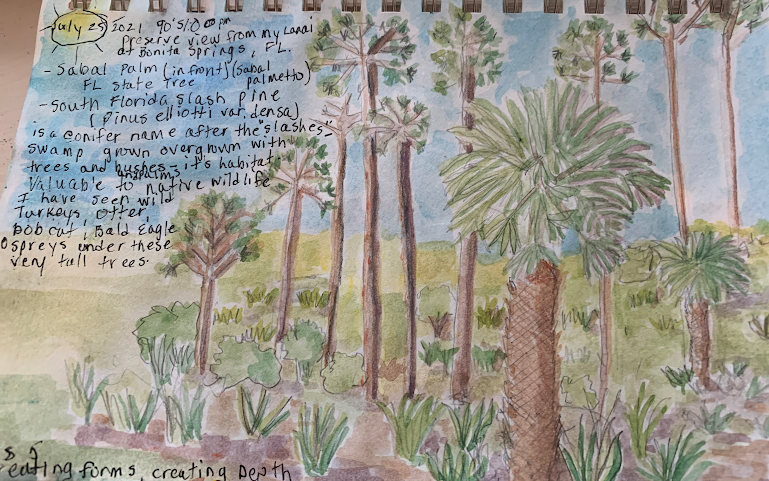 July 25 2021 90's 1:0 pm
Preserve view from my Lanai
at Bonita Springs, FL.
- Sabal Palm (in front) (Sabal
FL State Tree palmetto)
- South Florida Slash pine
(Pinus elliotti var. densa)
is a conifer name after the "slashes -
swamp grown overgrown with
trees and bushes - it's habitat.
Valuable to native wildlife
I have seen wild
Turkeys, Otter,
Bobcat, Bald Eagle
Ospreys under these
very tall trees.
eating forms, creating Depth